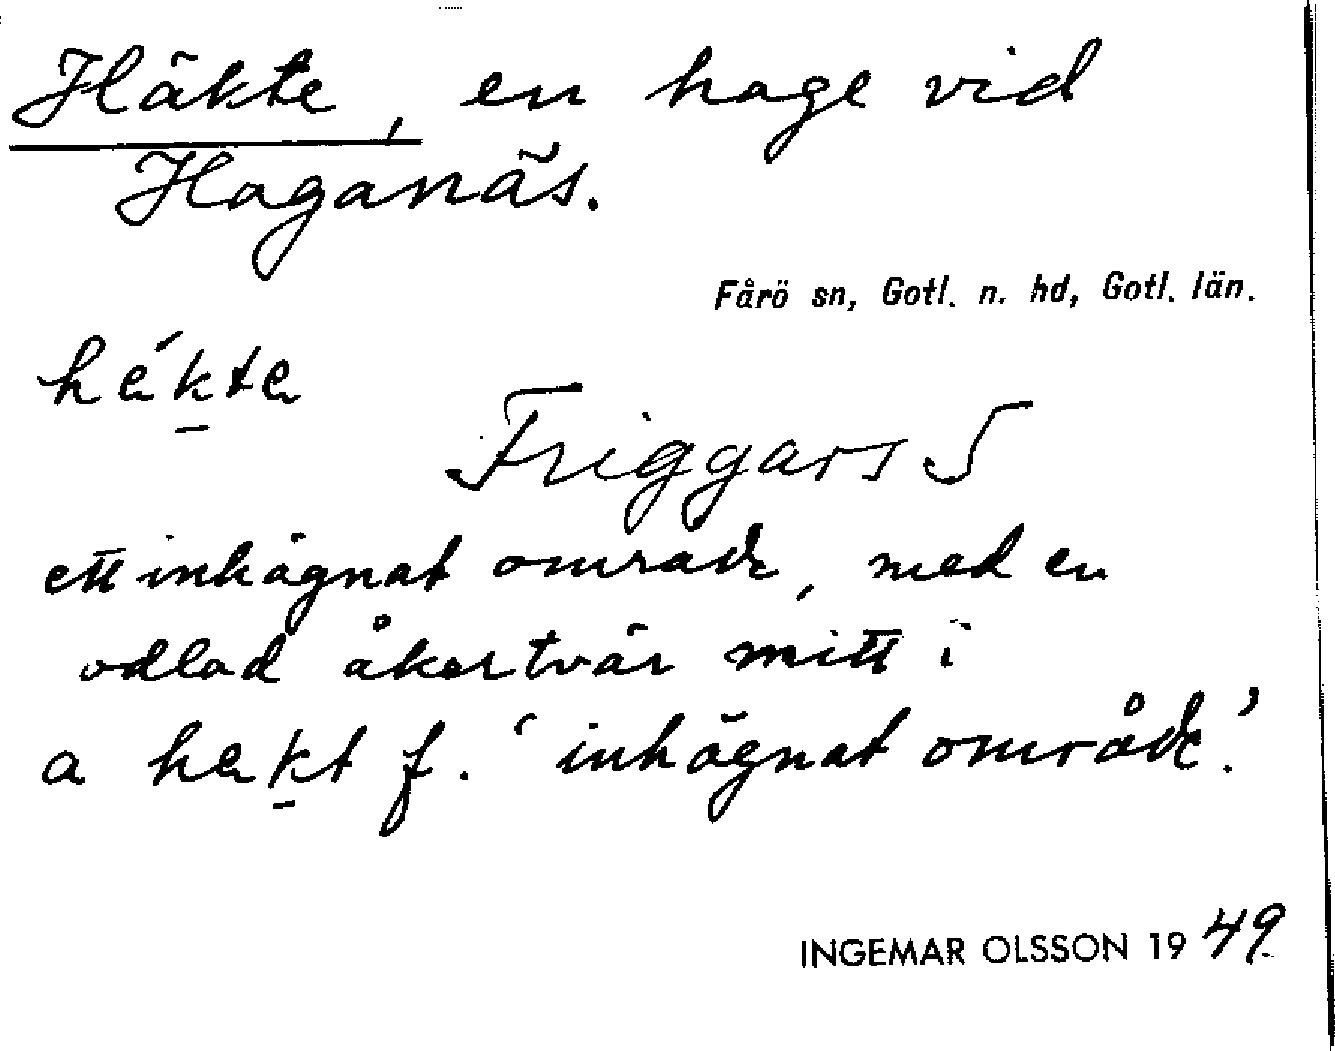 Häkte, en hage vid
Haganäs.
Fårö sn, Gotl. n. hd, Gotl. län.
hékta
Friggars S
ett inhägnat område, med en
odlad åkertvär mitt i
a hekt f. 'inhägnat område.'
INGEMAR OLSSON 1949